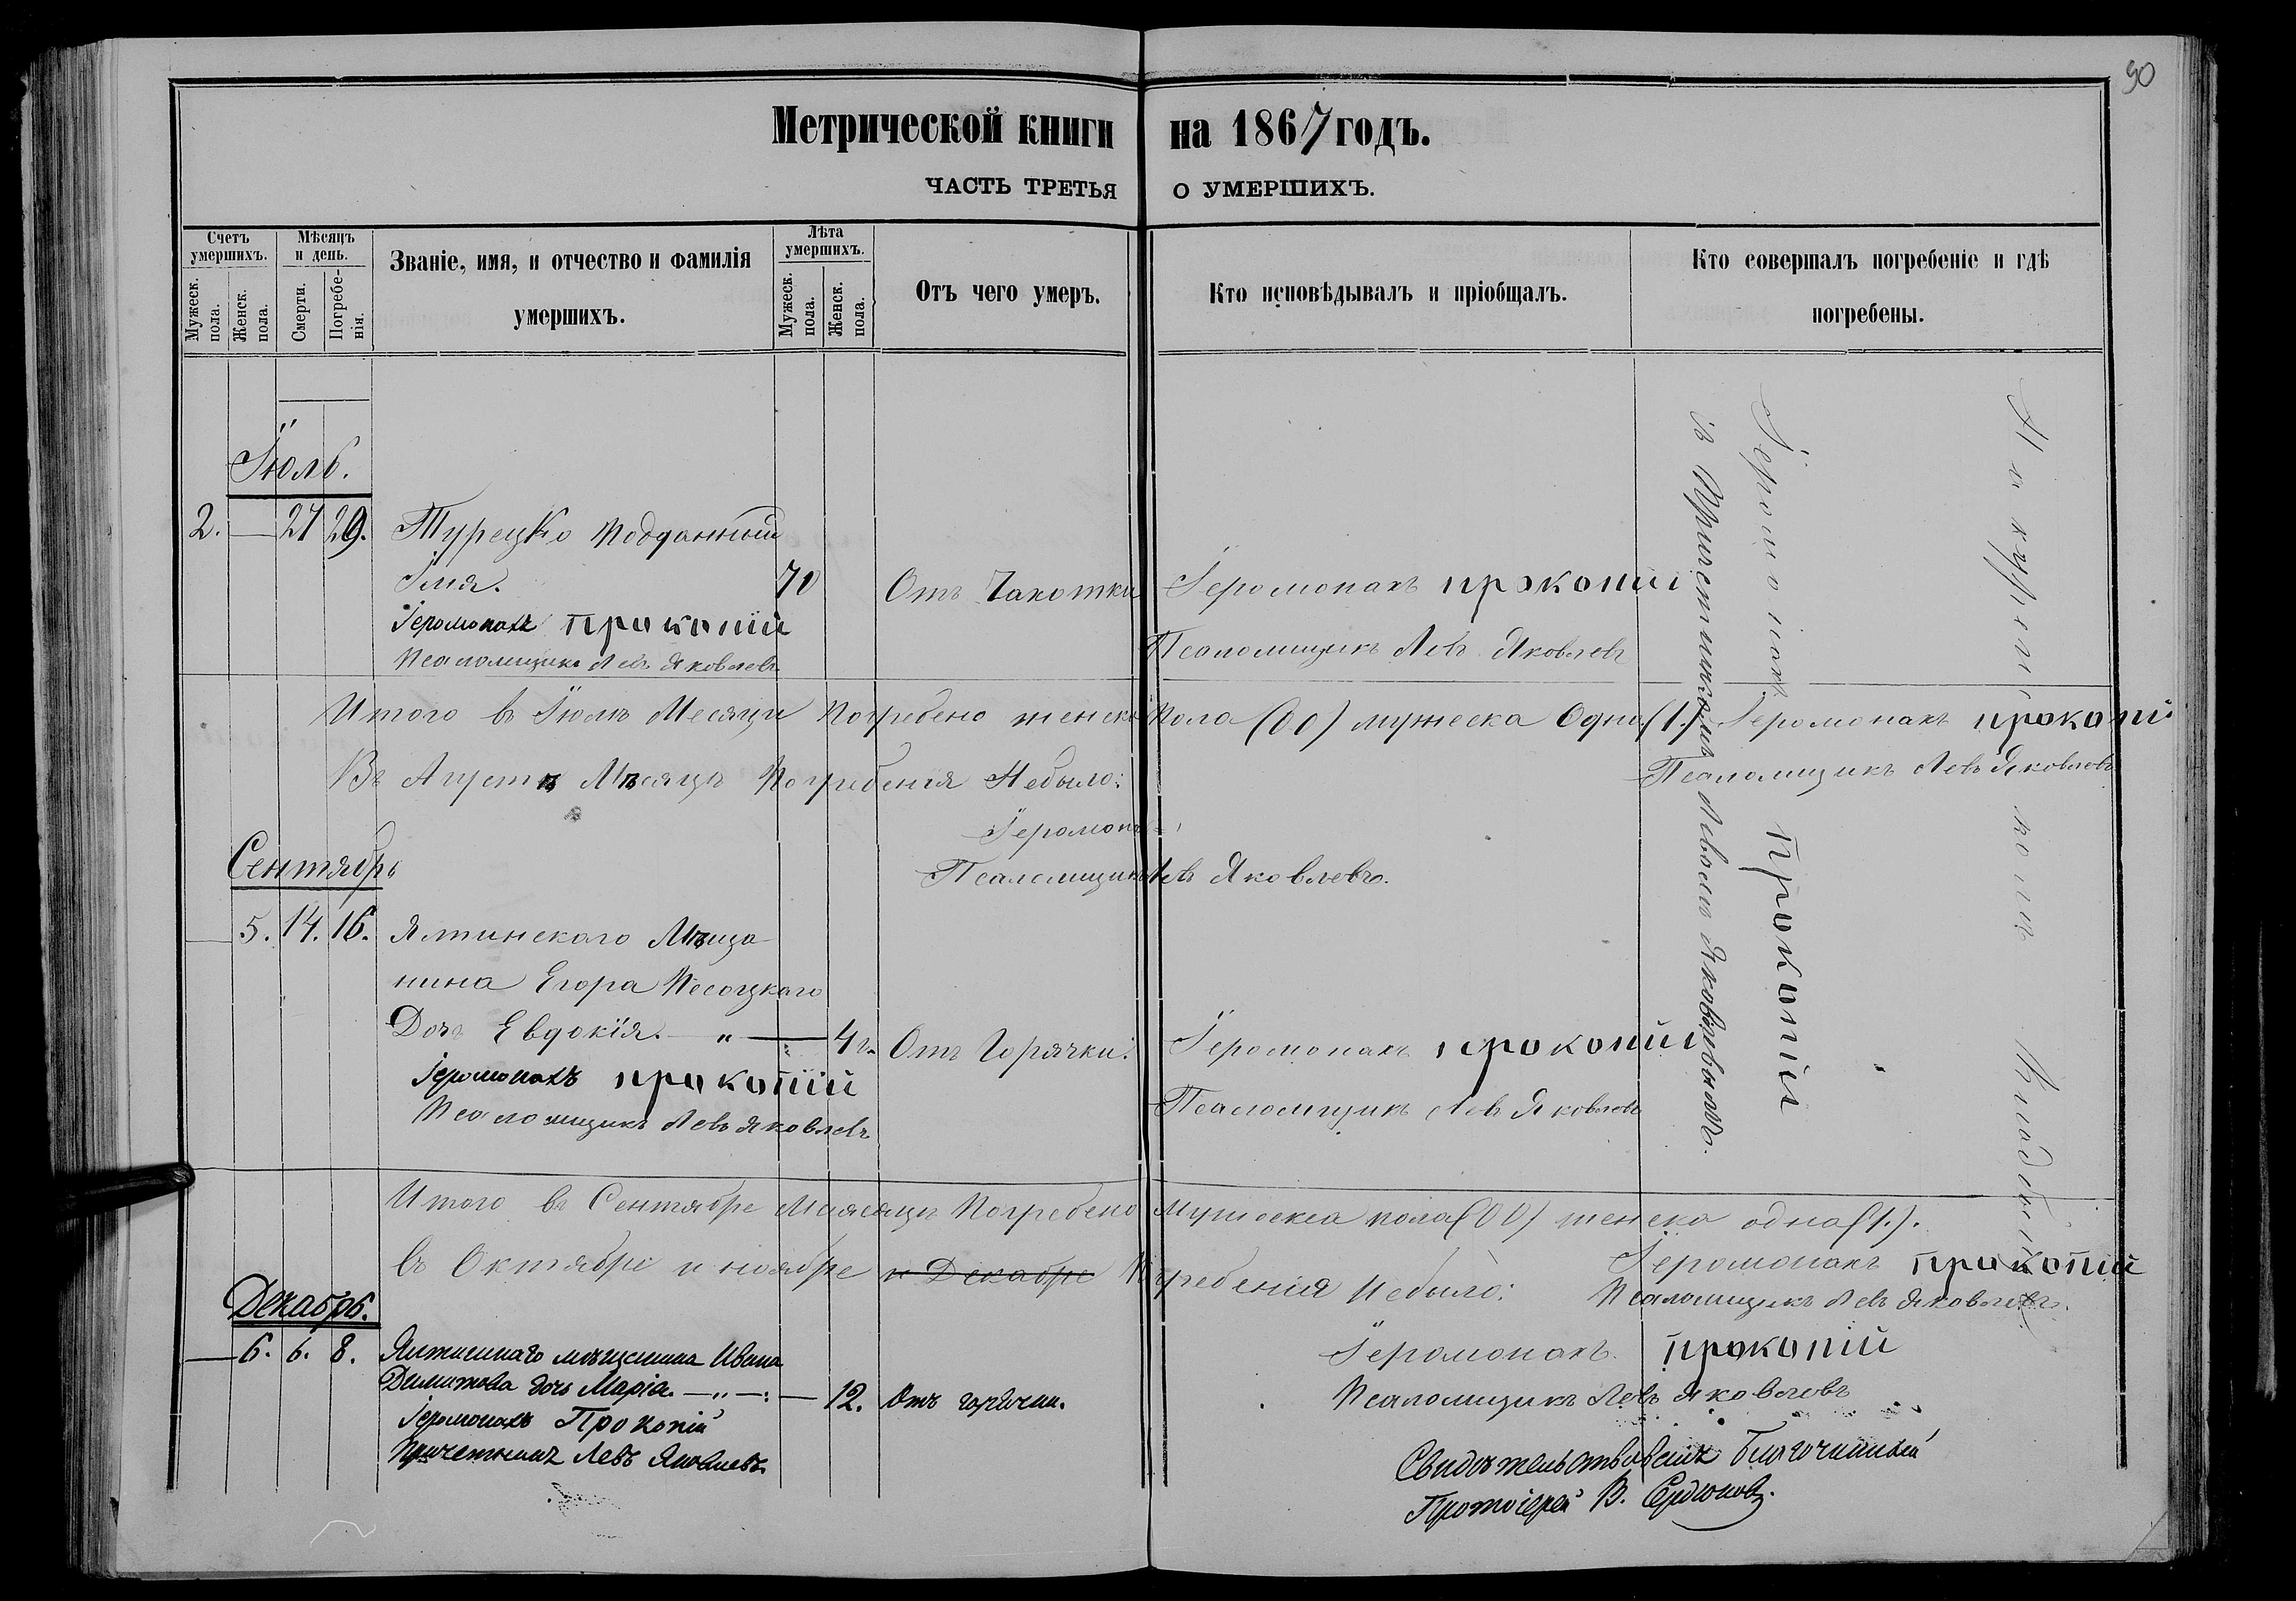 90
Метрической книги на 1867 годъ.
ЧАСТЬ ТРЕТЬЯ О УМЕРШИХЪ.
Счетъ умершихъ.
Мужеск. пола.
Женск. пола.
Мѣсяцъ и день.
Смерти.
Погребе-нія.
Званіе, имя, и отчество и фамилія
умершихъ.
Лѣта умершихъ.
Мужеск. пола.
Женск. пола.
Отъ чего умеръ.
Кто исповѣдывалъ и пріобщалъ.
Кто совершалъ погребеніе и гдѣ
погребены.
Іюль.
2. — 27 29. Турецко Подданный
70 Отъ Чахотки Іеромонахъ прокопій
Іеромонахъ прокопій
Псаломщикъ Левъ Яковлевъ Псаломщикъ Левъ Яковлевъ
Итого въ Іюлѣ Месяцы Погребено женско Пола (00) мужеска Одно (1.) Іеромонахъ прокопій
Псаломщикъ Левъ Яковлевъ
Въ Августѣ Мѣсяцѣ Погребенія Небыло:
Іеромон
Псаломщикъ Левъ Яковлевъ.
Сентябрь
— 5. 14. 16. Ялтинскаго Мѣща-
нина Егора Песоцкаго
Дочь Евдокія. — „ — 4 г. Отъ Горячки: Іеромонахъ прокопій
Іеромонахъ прокопій
Псаломщикъ Левъ Яковлевъ Псаломщикъ Левъ Яковлевъ
Іеромонахъ Прокопій
съ Причетникомъ Левомъ Яковлевымъ.
Итого въ Сентябре Месясяцы Погребено Мужеска пола (00) женска одна (1.).
въ Октябре и ноябре и Декабре Погребенія Небыло: Іеромонахъ прокопій
Псаломщикъ Левъ Яковлевъ.
Декабрь.
— 6. 6. 8. Ялтинскаго мѣщанина Ивана
дочь Марія. — „ — : — 12. Отъ горячки.
Іеромонахъ Прокопій
Причетникъ Левъ Яковлевъ.
Іеромонахъ прокопій
Псаломщикъ Левъ Яковлевъ
Свидѣтельствовалъ Благочинный
Протоіерей В.